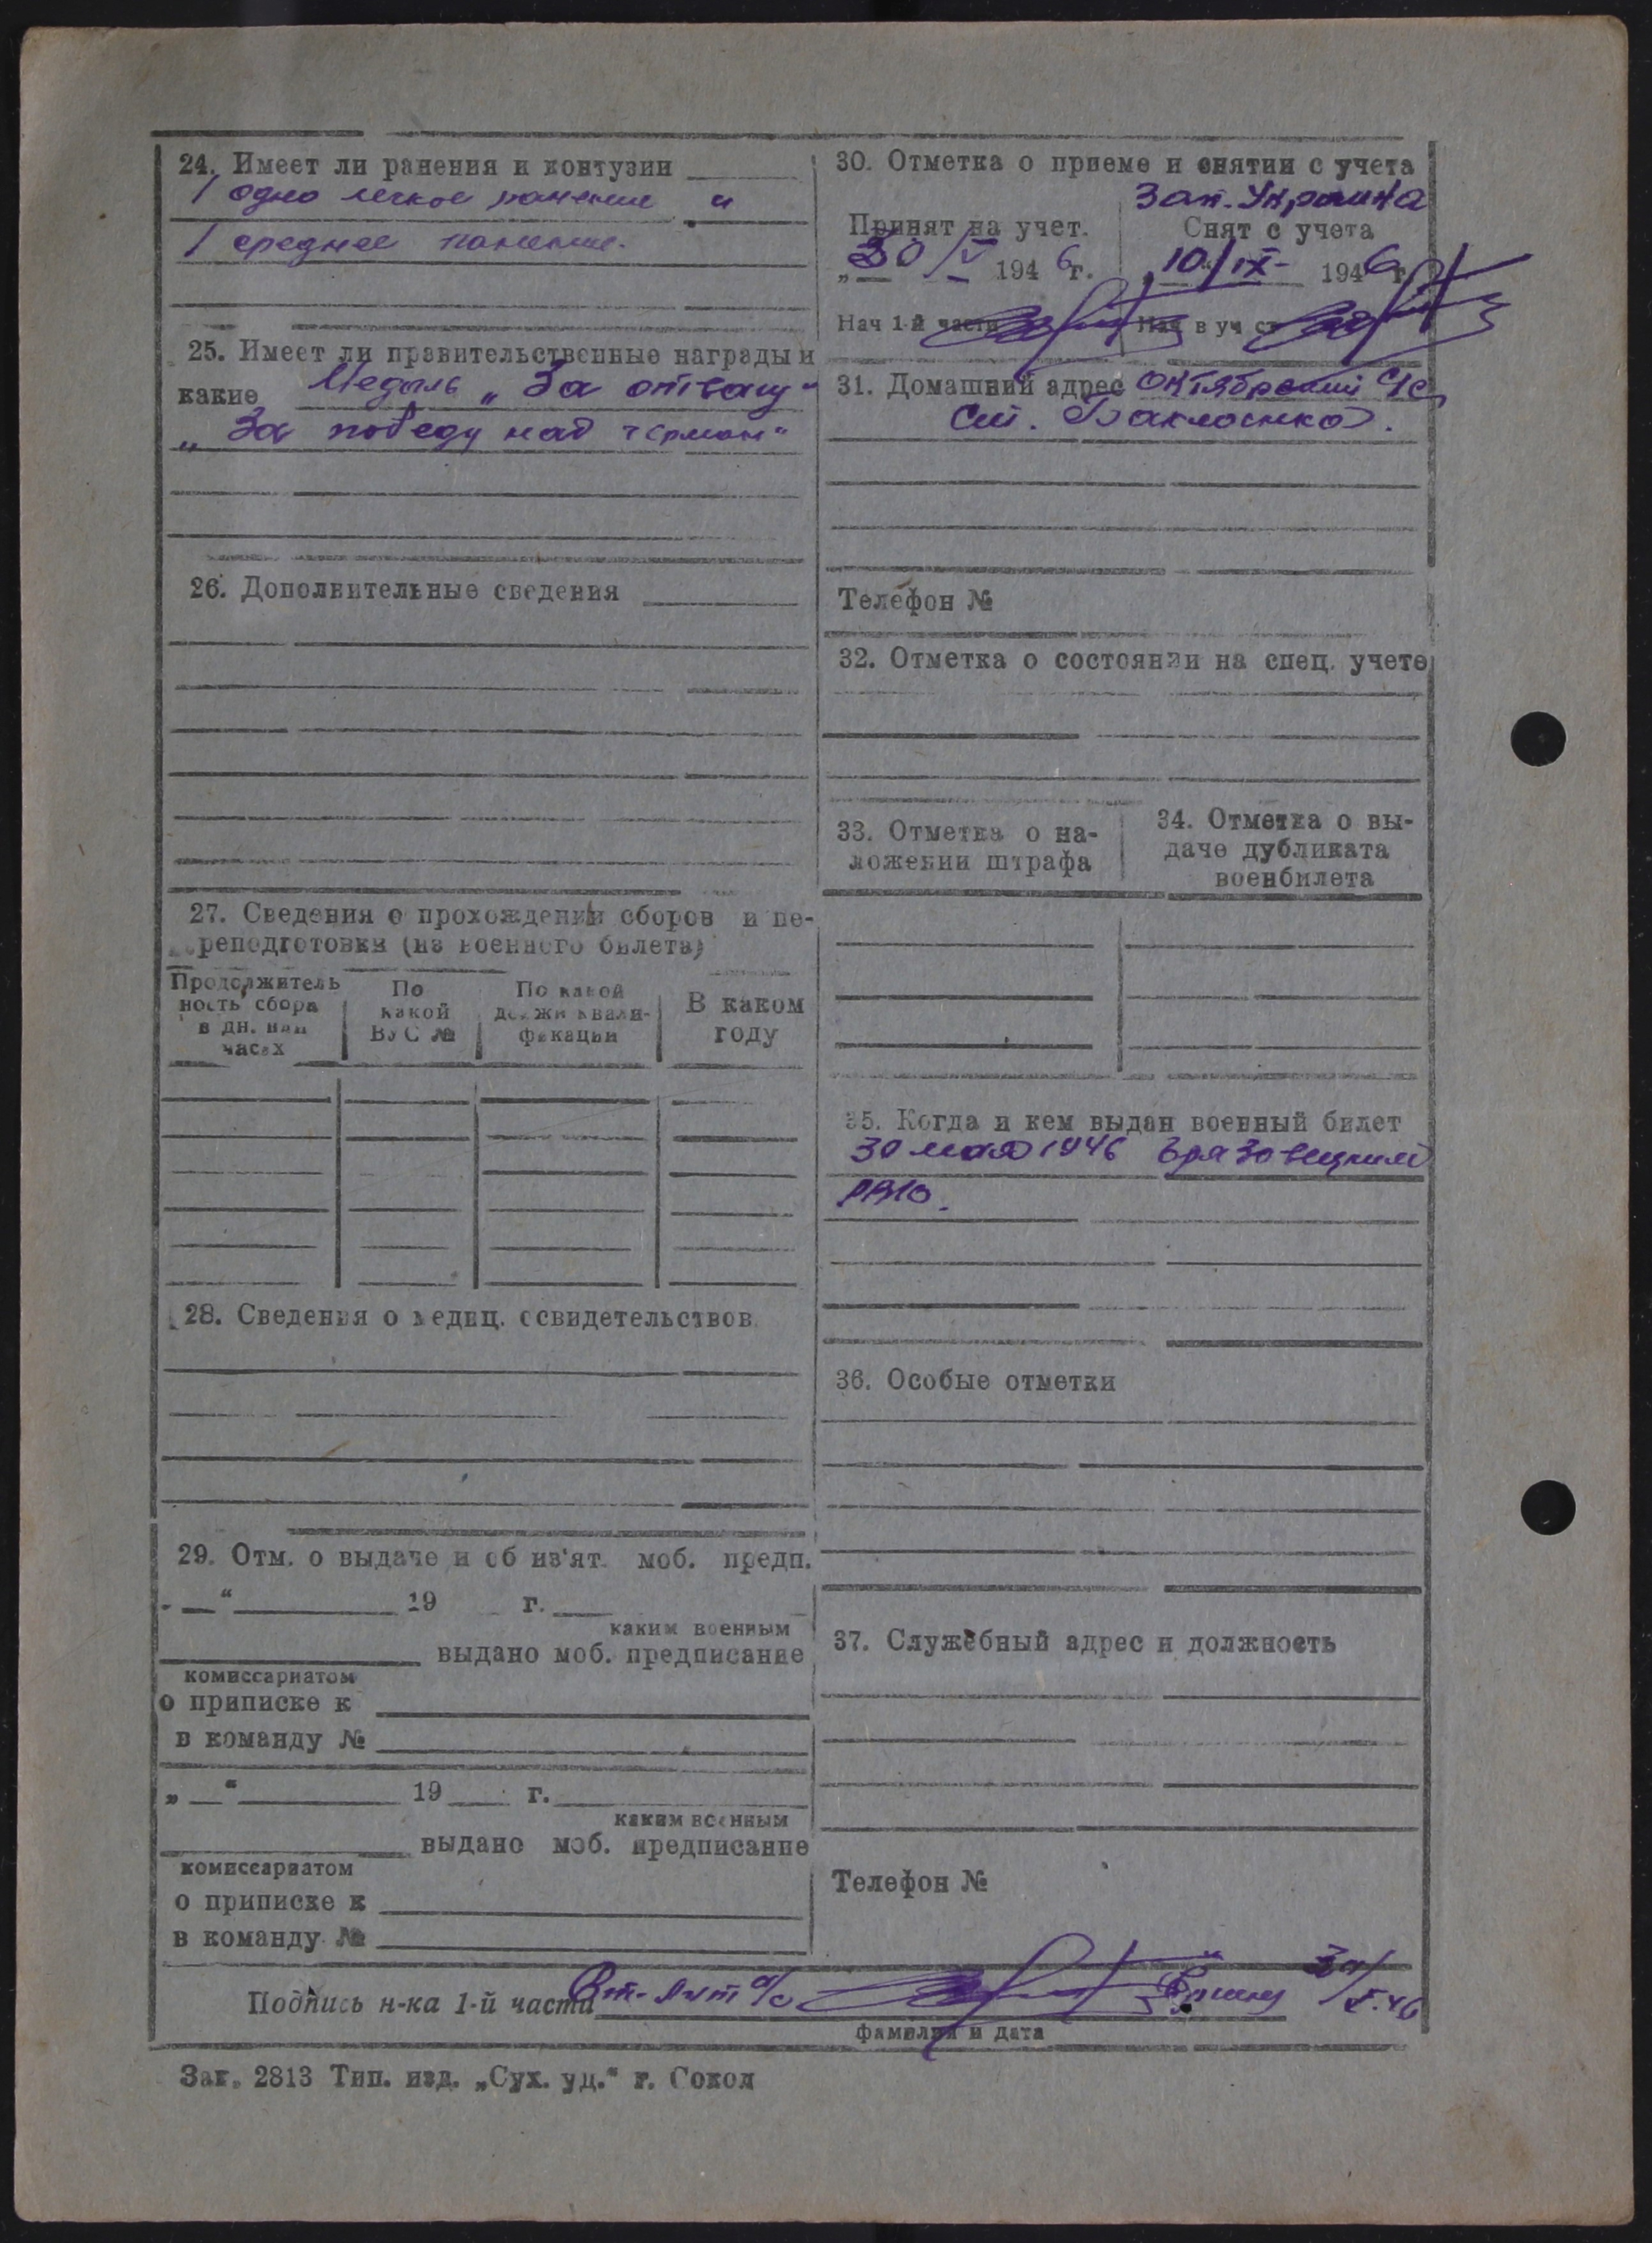 24. Имеет ли ранения и контузии
1 одно легкое ранение и
1 среднее ранение.
25. Имеет ли правительственные награды и
какие Медаль „За отвагу“
„За победу над герман“
26. Дополнительные сведения
27. Сведения о прохождении сборов и пе-
реподготовки (из военного билета)
Продолжитель
ность сбора
в дн. или
часах
По
какой
ВУС №
По какой
должн квали-
фикации
В каком
году
28. Сведения о медиц. освидетельствов.
29. Отм. о выдаче и об из'ят. моб. предп.
„ “ 19 г.
каким военным
выдано моб. предписание
комиссариатом
о приписке к
в команду №
„ “ 19 г.
каким военным
выдано моб. предписание
комиссариатом
о приписке к
в команду №
30. Отметка о приеме и снятии с учета
Зап. Украина
Принят на учет.
„30/V 1946 г.
Нач 1-й части
Снят с учета
„10/IX- 1946 г.
Нач в уч ст
31. Домашний адрес Октябрьский с/с
ст. Бакланка.
Телефон №
32. Отметка о состоянии на спец. учете
33. Отметка о на-
ложении штрафа
34. Отметка о вы-
даче дубликата
военбилета
35. Когда и кем выдан военный билет
30 мая 1946 Грязовецким
РВК.
36. Особые отметки
37. Служебный адрес и должность
Телефон №
Подпись н-ка 1-й части Ст. лит а/с 30/V.46
фамилия и дата
Зак. 2813 Тип. изд. „Сух. уд.“ г. Сокол